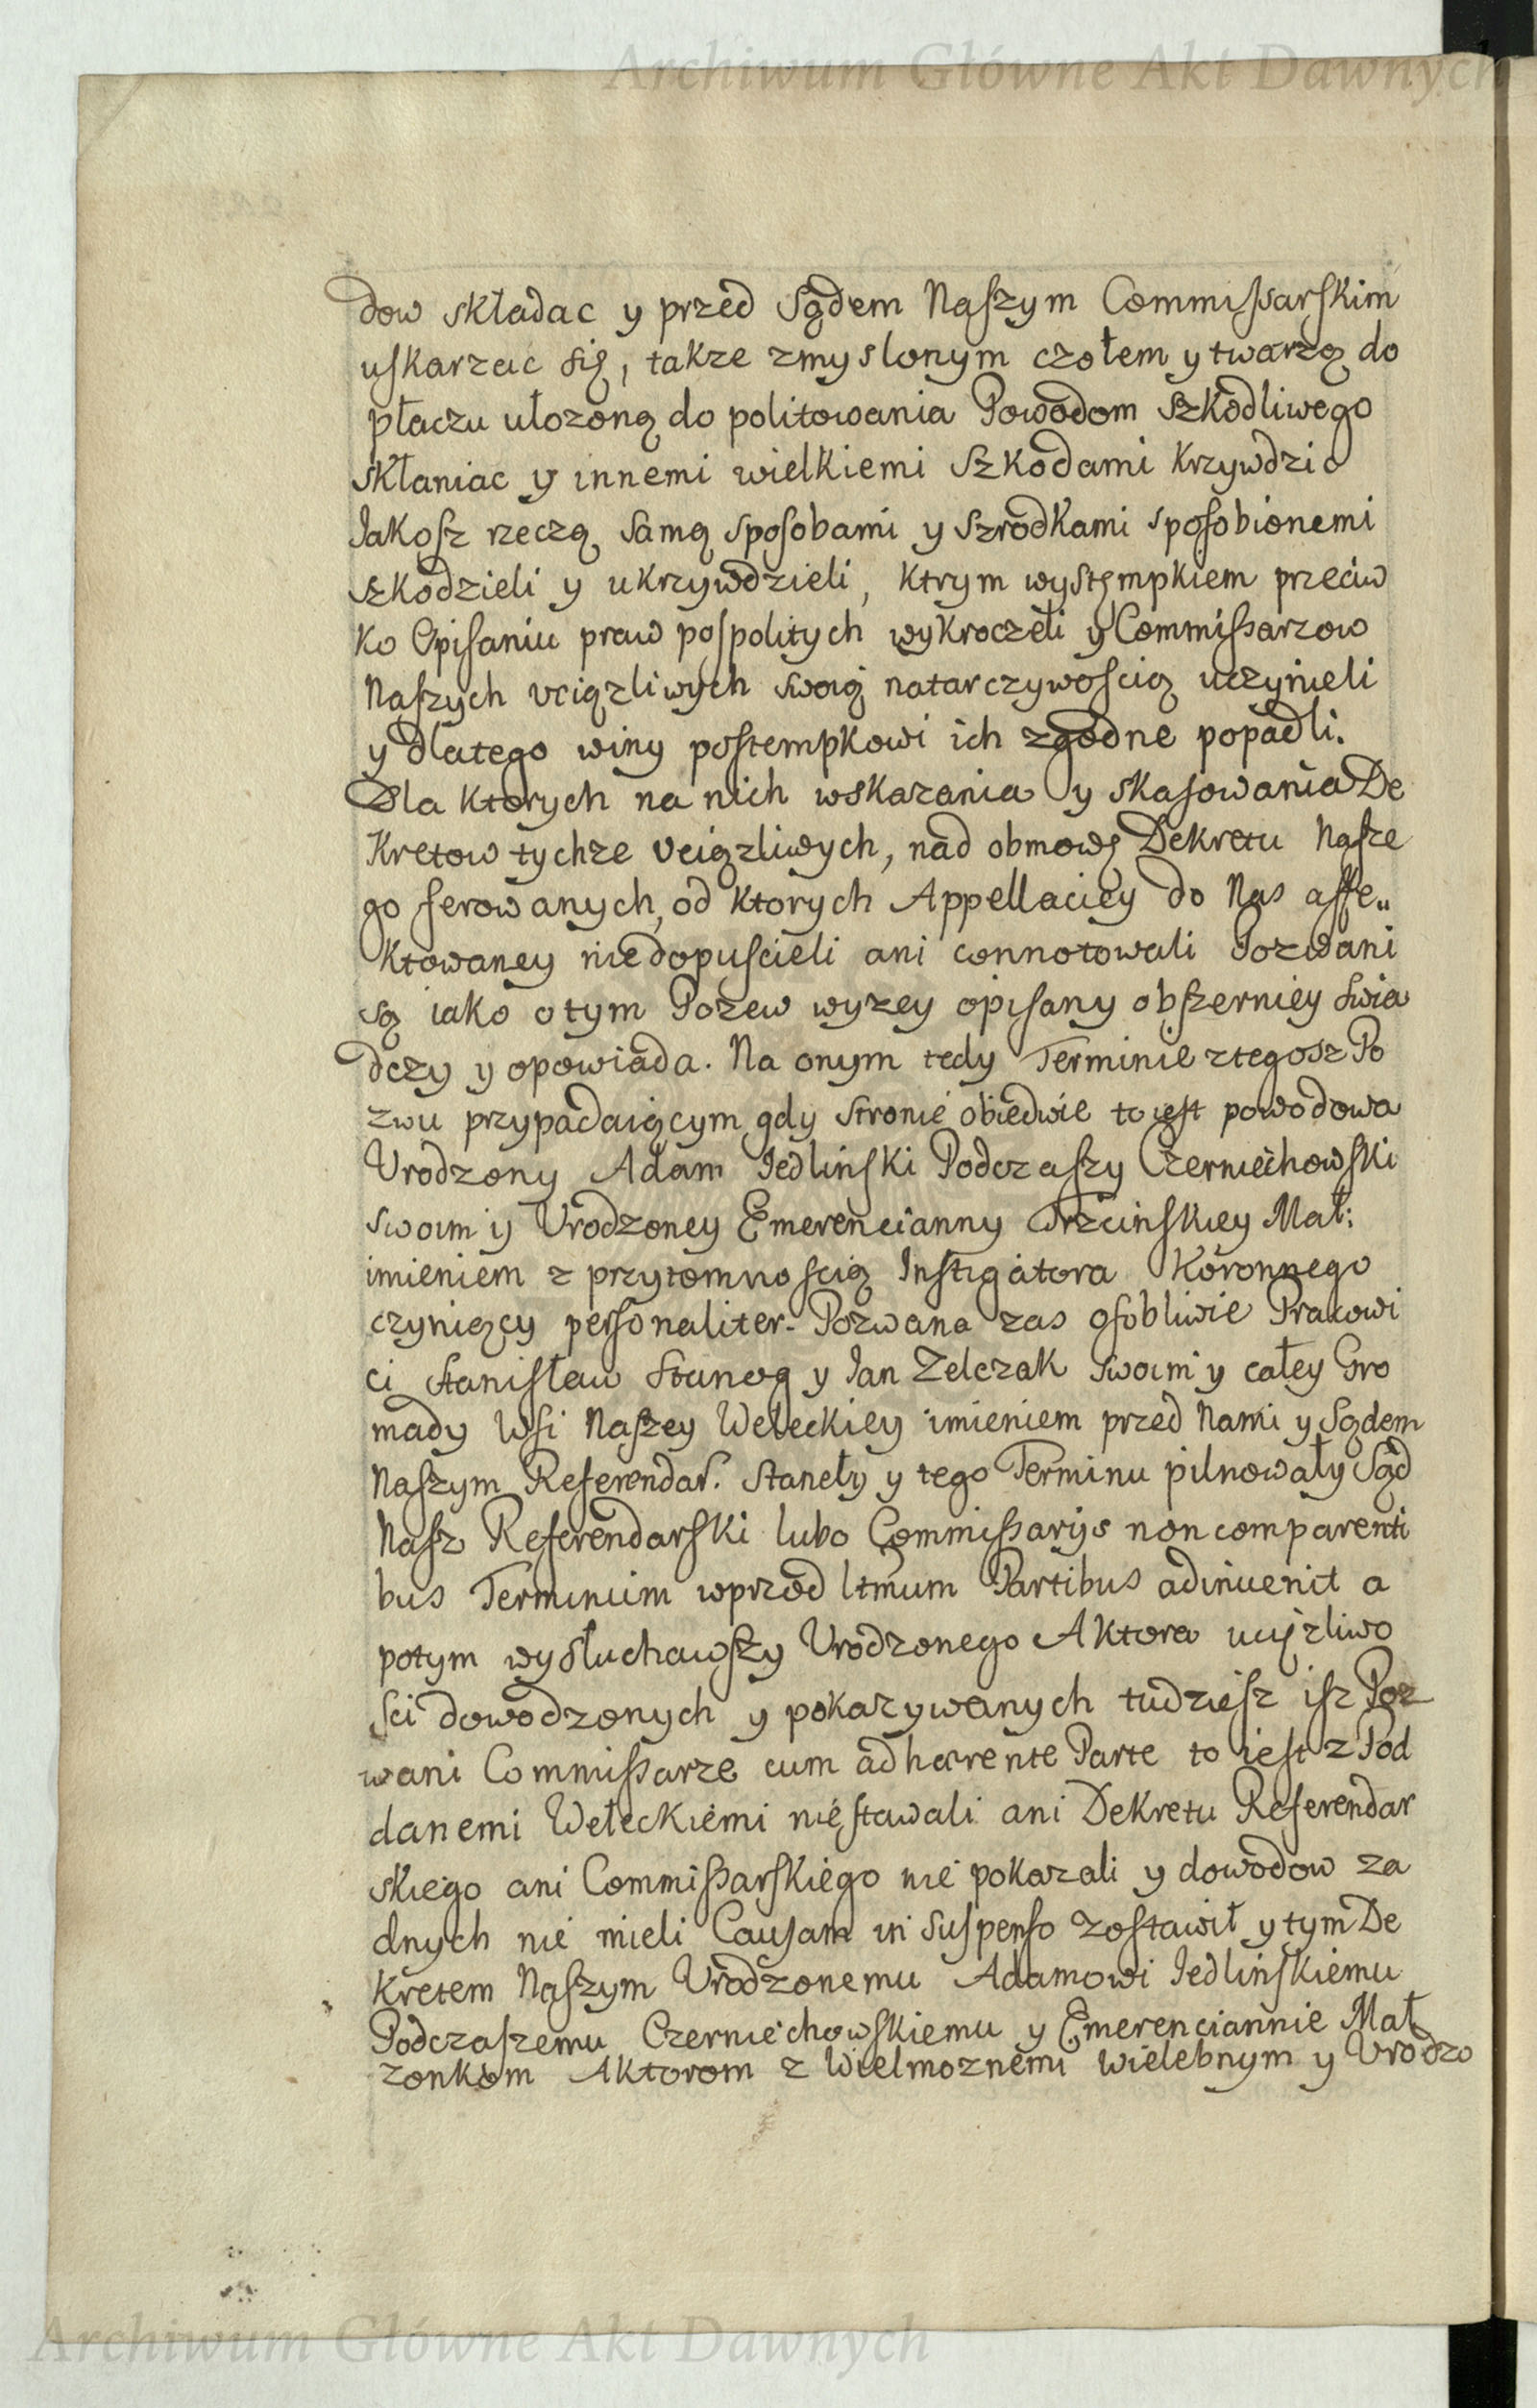 Archiwum Główne Akt Dawnych
dow składac y przed Sądem Naszym Commissarskim
uskarzac się, takze zmyslonym czołem y twarzą do
płaczu ułozoną do politowania Powodom szkodliwego
skłaniac y innemi wielkiemi szkodami krzywdzic
Jakosz rzeczą samą sposobami y szrodkami sposobionemi
szkodzieli y ukrzywdzieli, ktrym wystęmpkiem przeciw
ko Opisaniu praw pospolitych wykroczeli y Commissarzow
Naszych vciązliwych swoią natarczywoscią uczynieli
y dlatego winy postempkowi ich zgodne popadli.
Dla ktorych na nich wskazania y skasowania De
kretow tychze vciązliwych, nad obmowę Dekretu Nasze
go ferowanych, od ktorych Appellaciey do Nas affe„
ktowaney niedopuscieli ani connotowali Pozwani
są iako o tym Pozew wyzey opisany obszerniey swia
dczy y opowiada. Na onym tedy Terminie z tegosz Po
zwu przypadaiącym gdy stronie obiedwie to iest powodowa
Vrodzony Adam Jedlinski Podczaszy Czerniechowski
swoim y Vrodzoney Emerencianny Trzcinskiey Mał:
imieniem z przytomnoscią Instigatora Koronnego
czyniący personaliter. Pozwana zas osobliwie Pracowi
ci Stanisław Stanog y Jan Zelczak swoim y całey Gro
mady Wsi Naszey Weleckiey imieniem przed Nami y Sądem
Naszym Referendar. Staneły y tego Terminu pilnowały Sąd
Nasz Referendarski lubo Commissarijs non comparenti
bus Terminum wprzod ltmum Partibus adinuenit a
potym wysłuchawszy Vrodzonego Aktora uciązliwo
sci dowodzonych y pokazywanych tudziesz isz Poz
wani Commissarze cum adhaerente Parte to iest z Pod
danemi Wełeckiemi niestawali ani Dekretu Referendar
skiego ani Commissarskiego nie pokazali y dowodow za
dnych nie mieli Causam in suspenso zostawił y tym De
kretem Naszym Vrodzonemu Adamowi Jedlinskiemu
Podczaszemu Czerniechowskiemu y Emerenciannie Mał
zonkom Aktorom z Wielmoznemi wielebnym y Vrodzo
Archiwum Główne Akt Dawnych